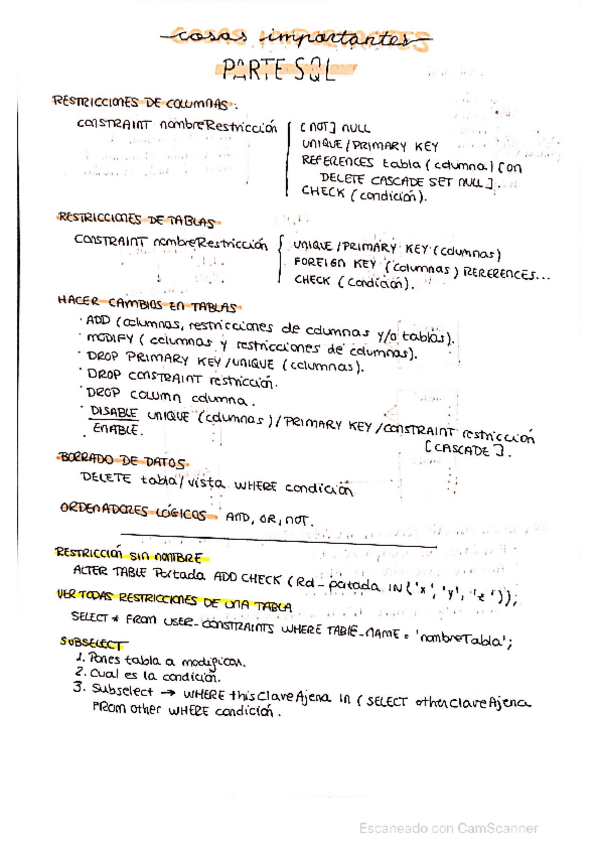 cosas importantes
PARTE SQL
RESTRICCIONES DE COLUMNAS:
CONSTRAINT nombreRestricción
[NOT] NULL
UNIQUE/PRIMARY KEY
REFERENCES tabla (columna) [ON
DELETE CASCADE SET NULL].
CHECK (condición).
RESTRICCIONES DE TABLAS
CONSTRAINT nombreRestricción
UNIQUE/PRIMARY KEY (columnas)
FOREIGN KEY (columnas) REFERENCES...
CHECK (condición).
HACER CAMBIOS EN TABLAS
· ADD (columnas, restricciones de columnas y/o tablas).
· MODIFY (columnas y restricciones de columnas).
· DROP PRIMARY KEY/UNIQUE (columnas).
· DROP CONSTRAINT restricción.
· DROP COLUMN columna.
· DISABLE UNIQUE (columnas)/PRIMARY KEY/CONSTRAINT restricción
ENABLE. [CASCADE].
BORRADO DE DATOS
DELETE tabla/vista WHERE condición
ORDENADORES LÓGICOS AND, OR, NOT.
RESTRICCIÓN SIN NOMBRE
ALTER TABLE Portada ADD CHECK (Rd_portada IN('x', 'y', 'z'));
VER TODAS RESTRICCIONES DE UNA TABLA
SELECT * FROM USER_CONSTRAINTS WHERE TABLE_NAME = 'nombreTabla';
SUBSELECT
1. Pones tabla a modificar.
2. Cual es la condición.
3. Subselect → WHERE thisClaveAjena IN (SELECT otherClaveAjena
FROM other WHERE condición.
Escaneado con CamScanner